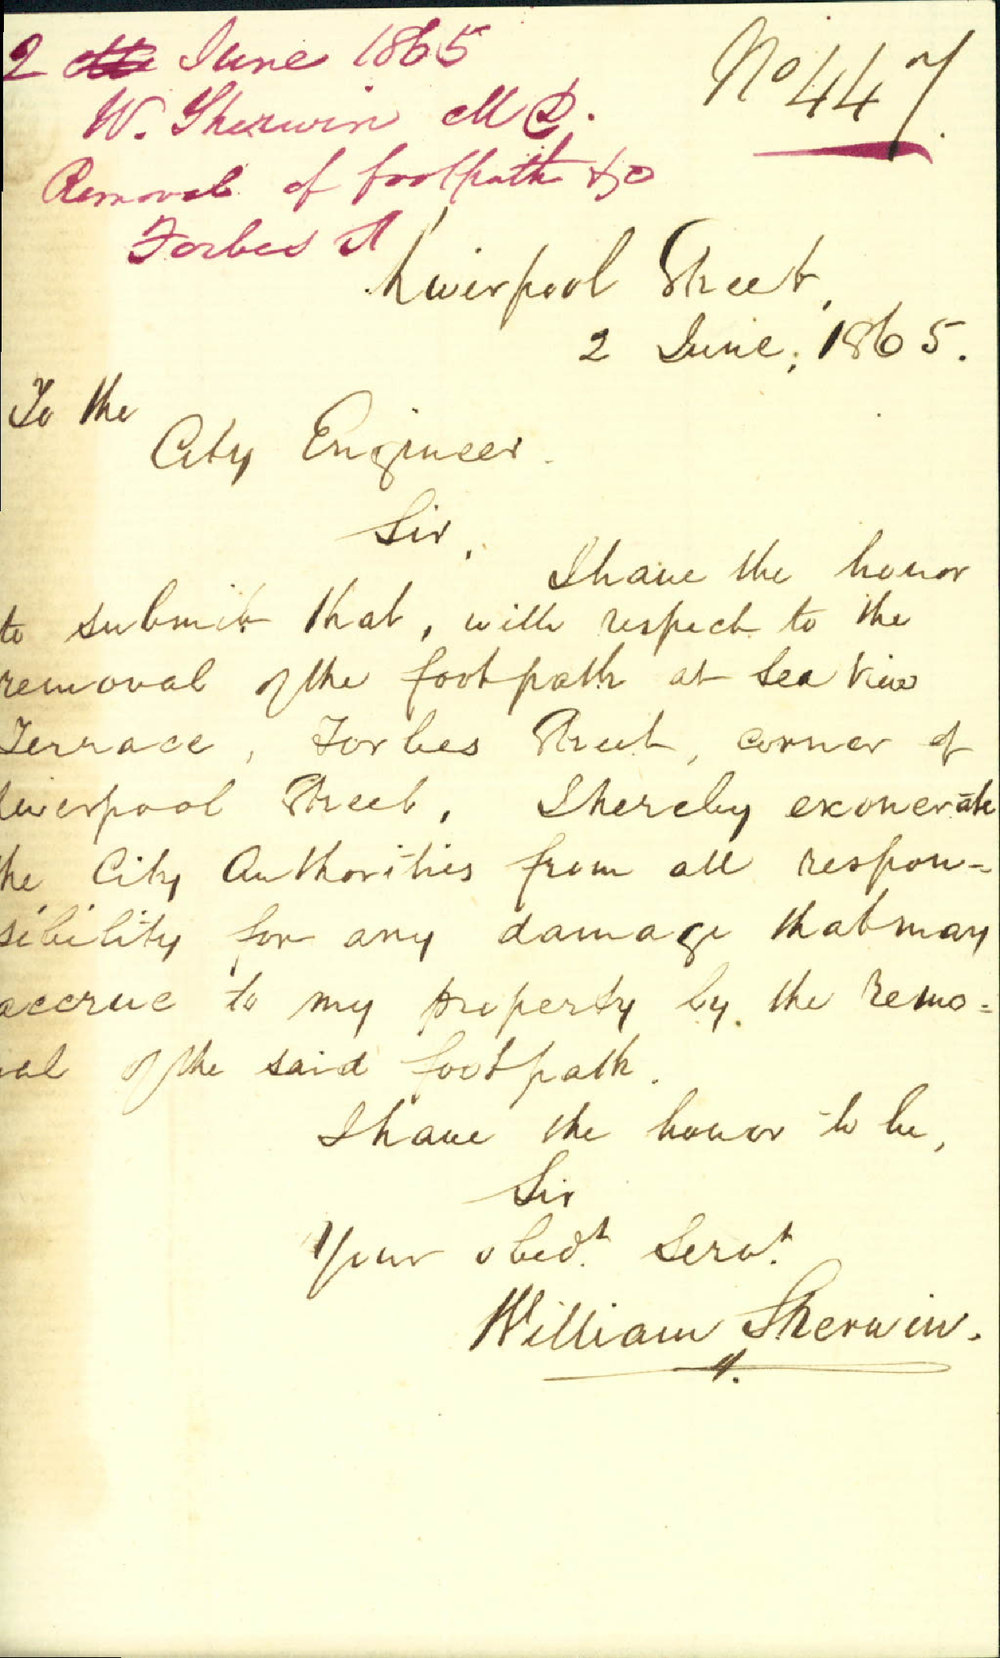 2 June 1865
W. Sherwin M D.
Removal of footpath &c
Forbes St
No 447.
Liverpool Street,
2 June, 1865.
To the
City Engineer.
Sir,
I have the honor
to submit that, with respect to the
removal of the footpath at Sea View
Terrace, Forbes Street, corner of
Liverpool Street, I hereby exonerate
the City Authorities from all respon-
sibility for any damage that may
accrue to my property by the remo=
val of the said footpath.
I have the honor to be,
Sir
Your obedt. Servt.
William Sherwin.